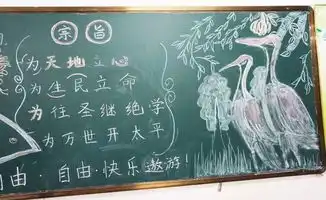 宗旨
为天地立心
为生民立命
为往圣继绝学
为万世开太平
自由·自由·快乐遨游!